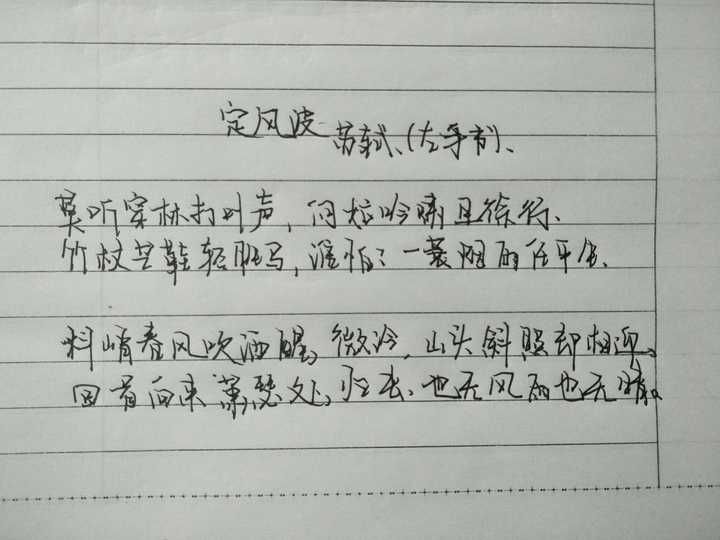 定风波
苏轼、(左手书)、
莫听穿林打叶声,何妨吟啸且徐行、
竹杖芒鞋轻胜马,谁怕?一蓑烟雨任平生、
料峭春风吹酒醒,微冷,山头斜照却相迎、
回首向来萧瑟处,归去、也无风雨也无晴。